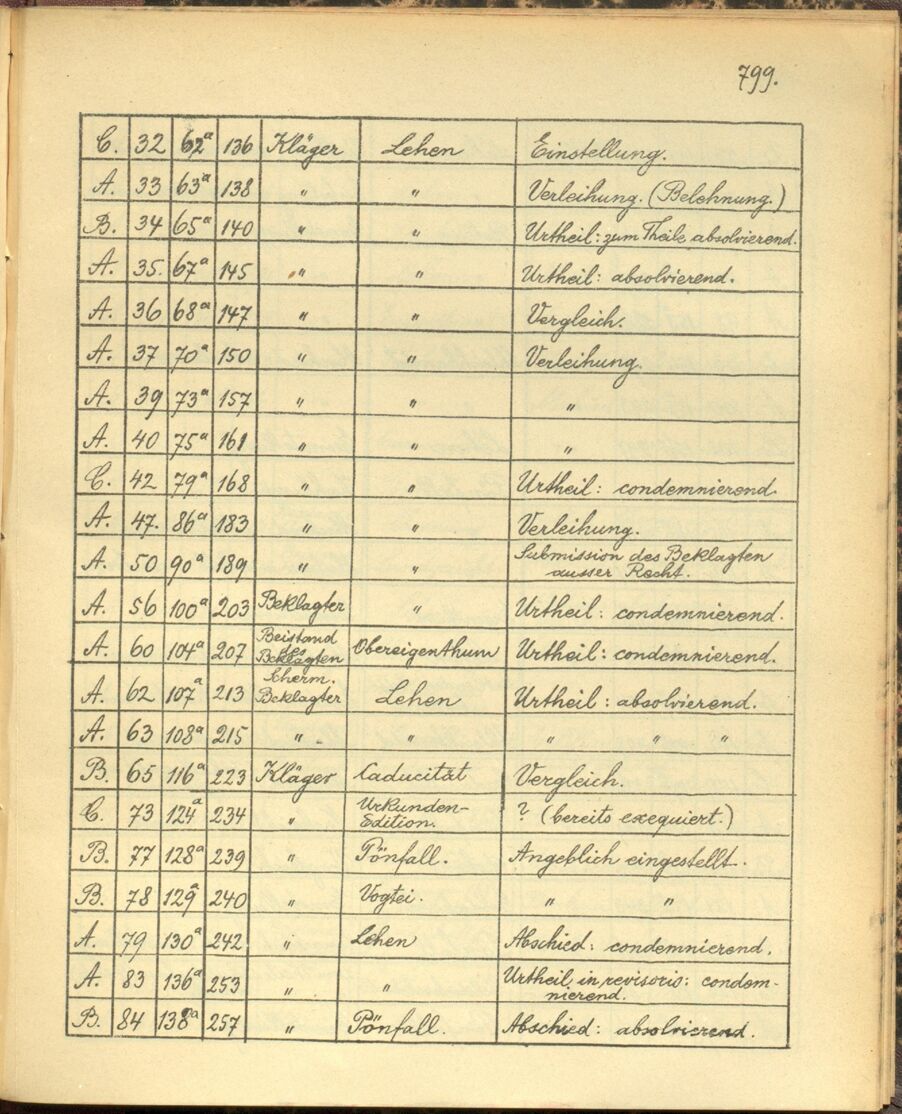 799.
C. 32 62a 136 Kläger Lehen Einstellung.
A. 33 63a 138 " " Verleihung. (Belehnung.)
B. 34 65a 140 " " Urtheil: zum Theile absolvierend.
A. 35. 67a 145 " " Urtheil: absolvierend.
A. 36 68a 147 " " Vergleich.
A. 37 70a 150 " " Verleihung.
A. 39 73a 157 " " "
A. 40 75a 161 " " "
C. 42 79a 168 " " Urtheil: condemnierend.
A. 47. 86a 183 " " Verleihung.
A. 50 90a 189 " " Submission des Beklagten
ausser Recht.
A. 56 100a 203 Beklagter " Urtheil: condemnierend.
A. 60 104a 207 Beistand
des
Beklagten Obereigenthum Urtheil: condemnierend.
A. 62 107a 213 Scherm.
Beklagter Lehen Urtheil: absolvierend.
A. 63 108a 215 " " " " "
B. 65 116a 223 Kläger Caducität Vergleich.
C. 73 124a 234 " Urkunden-
Edition. ? (bereits exequiert.)
B. 77 128a 239 " Pönfall. Angeblich eingestellt.
B. 78 129a 240 " Vogtei. " "
A. 79 130a 242 " Lehen Abschied: condemnierend.
A. 83 136a 253 " " Urtheil in revisoris: condem-
nierend.
B. 84 138a 257 " Pönfall. Abschied: absolvierend.